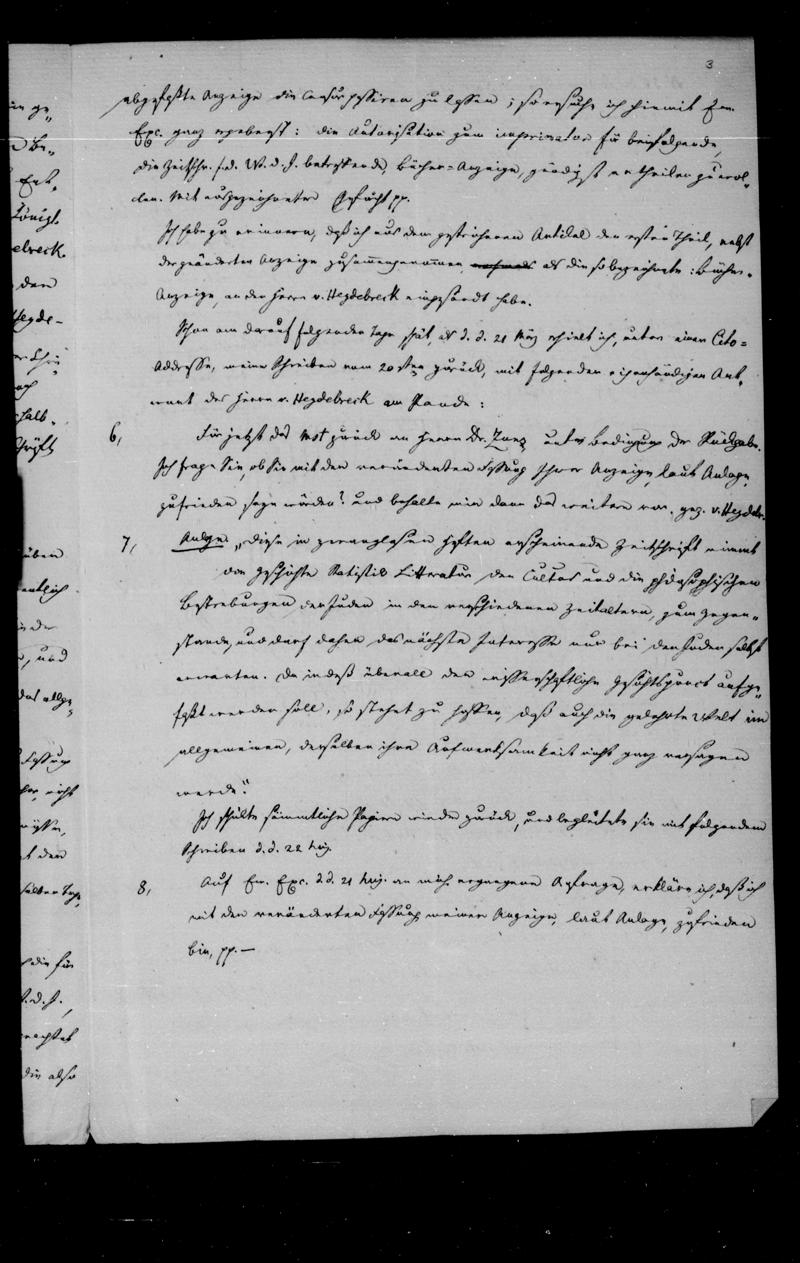 3
abgefaßte Anzeige die Censur passiren zu lassen; so ersuche ich hiermit Ew.
Exc. ganz ergebenst: die Autorisation zum imprimatur für beifolgende,
die Zeitschr. f. d. W. d. J. betreffende, Bücher-Anzeige, gnädigst ertheilen zu wol-
len. Mit ausgezeichneter Hochacht pp.
Ich habe zu erinnern, daß ich aus dem gestrichenen Artikel den ersten Theil, nebst
der geänderten Anzeige zusammengenommen als die so bezeichnete: Bücher-
Anzeige, an den Herrn v. Heydebreck eingesandt habe.
Schon am darauf folgenden Tage spät, als d. d. 21 März erhielt ich, unter einer Cito-
Addresse, meine Schreiben vom 20sten zurück, mit folgender eigenhändigen Ant-
wort des Herrn v. Heydebreck am Rande:
6, Für jetzt das Mst zurück an Herrn Dr. Zunz unter Bedingung der Rückgabe.
Ich frage Sie, ob Sie mit der veränderten Fassung Ihrer Anzeige, laut Anlage,
zufrieden seyn würden? und behalte mir dann das weitere vor. gez. v. Heydebr.
7, Anlge. „Diese in zwanglosen Heften erscheinende Zeitschrift nimmt
die Geschichte Statistik Litteratur den Cultus und die philosophischen
Bestrebungen der Juden in den verschiedenen Zeitaltern, zum Gegen-
stande, und darf daher das nächste Interesse nur bei den Juden selbst
erwarten. Da indeß überall der wissenschaftliche Gesichtspunct aufge-
faßt werden soll, so stehet zu hoffen, daß auch die gelehrte Welt im
allgemeinen, derselben ihre Aufmerksamkeit nicht ganz versagen
werde."
Ich schickte sämmtliche Papiere wieder zurück, und begleitete sie mit folgendem
Schreiben d. d. 22 huj.
8, Auf Ew. Exc. d. d. 21 huj. an mich ergangene Anfrage, erkläre ich, daß ich
mit der veränderten Fassung meiner Anzeige, laut Anlage, zufrieden
bin, pp. —